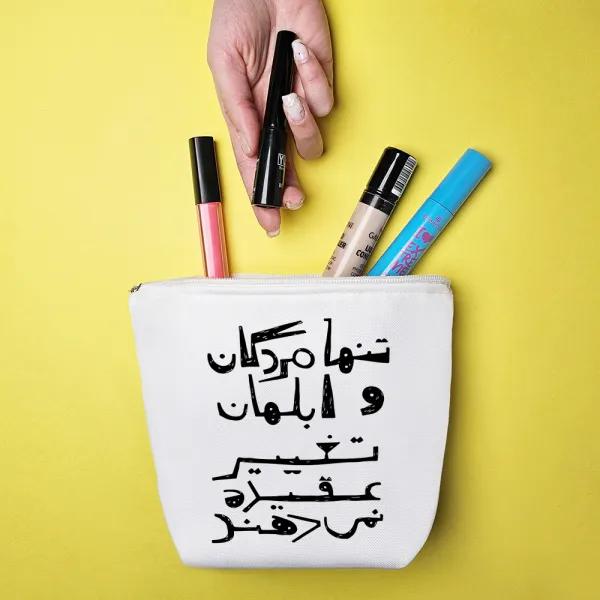 تنها مردگان
و ابلهان
تغییر
عقیده
نمی‌دهند